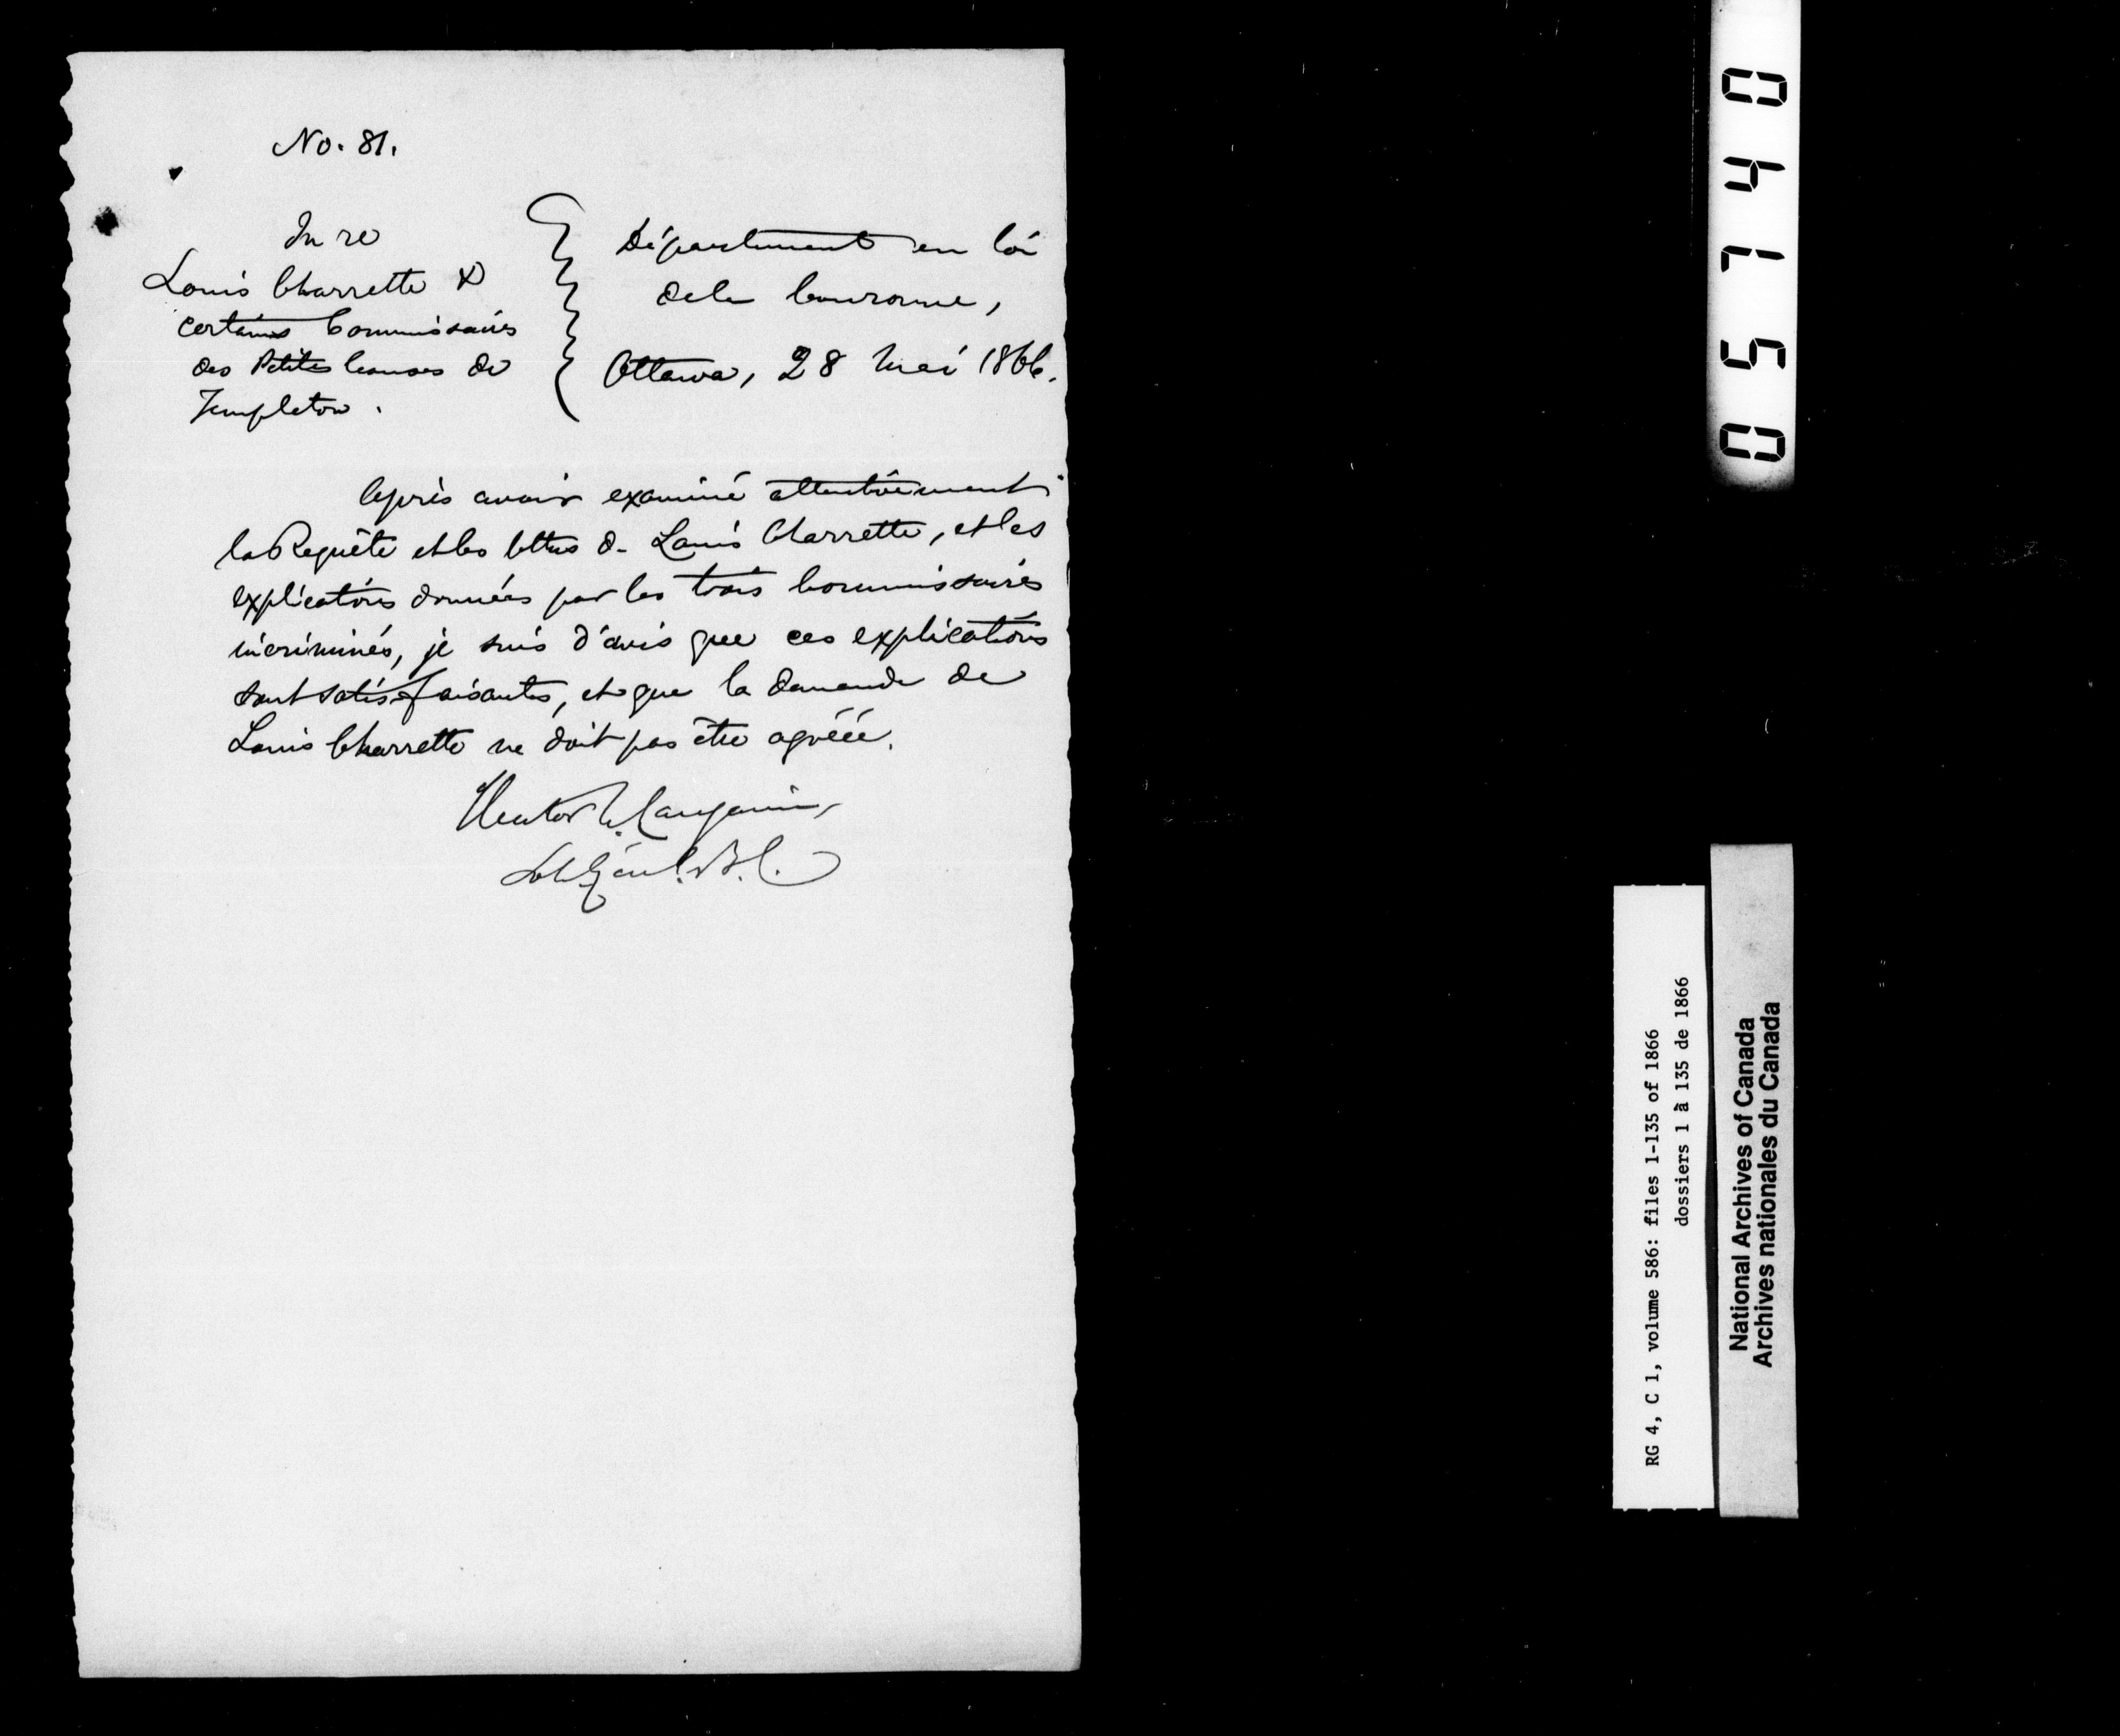 No. 81.
In re
Louis Charrette &
certains Commissaires
des Petites Causes de
Templeton.
Département en loi
de la Couronne,
Ottawa, 28 Mai 1866.
Après avoir examiné attentivement
la Requête et les lettres de Louis Charrette, et les
explications données par les trois Commissaires
incriminés, je suis d'avis que ces explications
sont satisfaisantes, et que la demande de
Louis Charrette ne doit pas être agréée.
Hector L. Langevin,
Sol. Génl. B.C.
0 4 7 5 0
RG 4, C 1, volume 586: files 1-135 of 1866
dossiers 1 à 135 de 1866
National Archives of Canada
Archives nationales du Canada